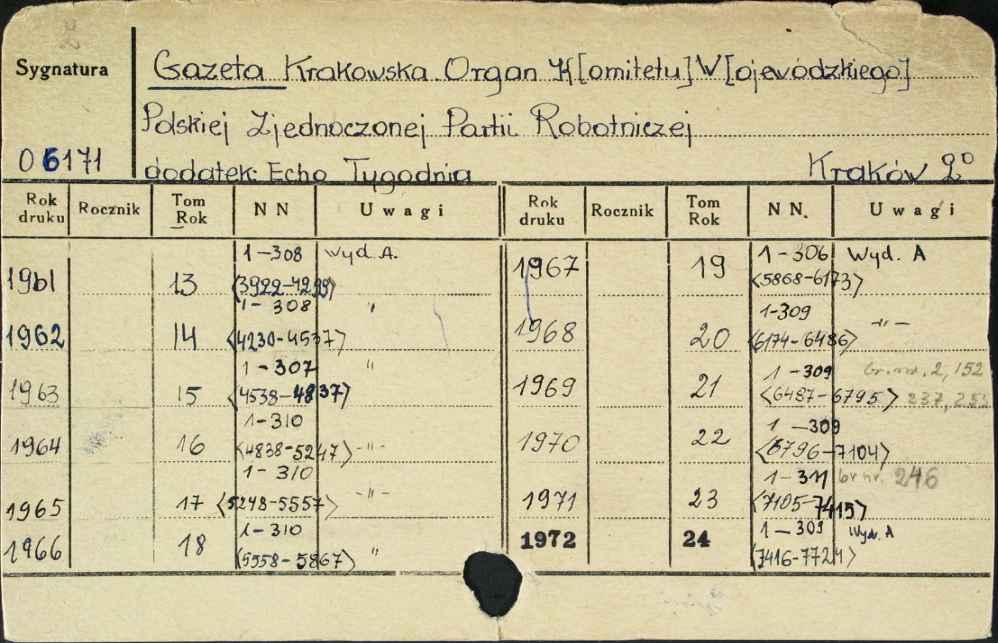 Sygnatura
Gazeta Krakowska Organ K[omitetu] W[ojewódzkiego]
Polskiej Zjednoczonej Partii Robotniczej
06171
dodatek: Echo Tygodnia Kraków 2°
Rok druku Rocznik Tom Rok NN Uwagi
1961 13 1-308 <3922-4229> Wyd. A.
1962 14 1-308 <4230-4537> "
1963 15 1-307 <4538-4837> "
1964 16 1-310 <4838-5247> -"-
1965 17 1-310 <5248-5557> -"-
1966 18 1-310 <5558-5867> "
Rok druku Rocznik Tom Rok NN. Uwagi
1967 19 1-306 <5868-6173> Wyd. A
1968 20 1-309 <6174-6486> -"-
1969 21 1-309 <6487-6795> 2, 152 237,
1970 22 1-309 <6796-7104>
1971 23 1-311 <7105-7415> br nr. 246
1972 24 1-309 <7416-7724> Wyd. A